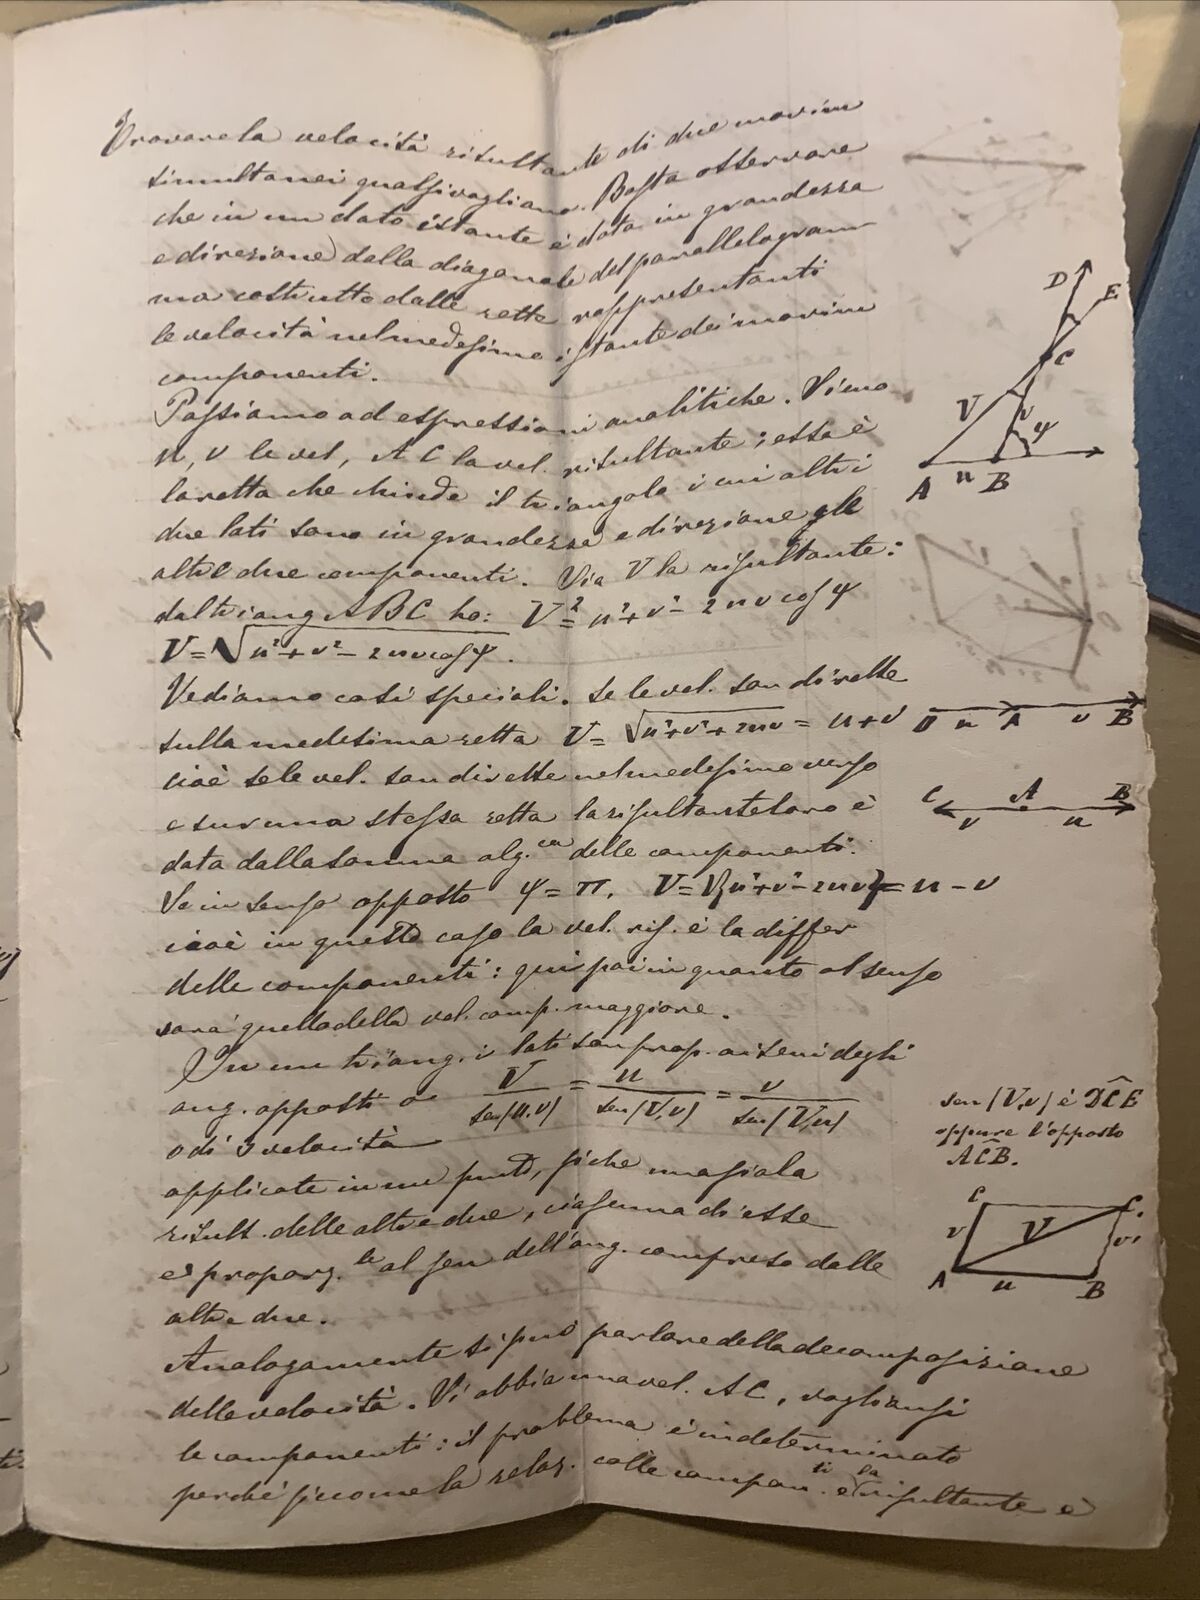 Trovare la velocità risultante di due movim
simultanei qualsivogliano. Basta osservare
che in un dato istante è data in grandezza
e direzione dalla diagonale del parallelogram
ma costrutto dalle rette rappresentanti
le velocità nel medesimo istante dei movim
componenti.
Passiamo ad espressioni analitiche. Sieno
u, v le vel, AC la vel. risultante; essa è
la retta che chiude il triangolo i cui altri
due lati sono in grandezza e direzione gli
altre due componenti. Sia V la risultante:
dal triang ABC ho: V² = u² + v² - 2uv cos ψ
V = √u² + v² - 2uv cos ψ.
Vediamo casi speciali. Se le vel. son dirette
sulla medesima retta V = √u² + v² + 2uv = u + v
cioè se le vel. son dirette nel medesimo verso
e sur una stessa retta la risultante loro è
data dalla somma alg.ca delle componenti.
Se in senso opposto ψ = π, V = √{u² + v² - 2uv} = u - v
cioè in questo caso la vel. ris. è la differ
delle componenti: qui poi in quanto al senso
sarà quello della vel. comp. maggiore.
In un triang. i lati son prop. ai seni degli
ang. opposti o V/sen(u,v) = u/sen(V,v) = v/sen(V,u)
o di 3 velocità
applicate in un punto, siche una sia la
risult. delle altre due, ciascuna di esse
è proporz.le al sen dell'ang. compreso dalle
altre due.
Analogamente si può parlare della decomposizione
delle velocità. Si abbia una vel. AC, vogliansi
le componenti: il problema è indeterminato
perchè siccome la relaz. colle componti. e la risultante è
D E
C
V v ψ
A u B
D u A v B
C A B
v u
sen(V,v) è DĈE
oppure l'opposto
AĈB.
C C
v V v'
A u B